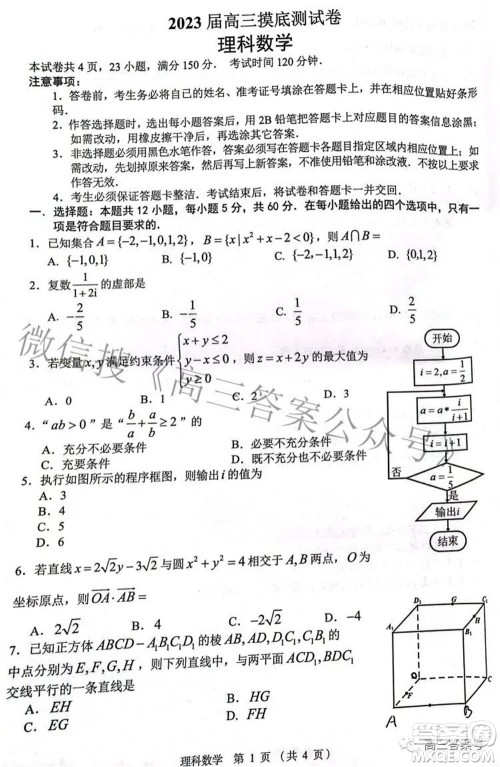 2023 届高三摸底测试卷
理科数学
本试卷共 4 页，23 小题，满分 150 分．考试时间 120 分钟．
注意事项：
1．答卷前，考生务必将自己的姓名、准考证号填涂在答题卡上，并在相应位置贴好条形
码．
2．作答选择题时，选出每小题答案后，用 2B 铅笔把答题卡上对应题目的答案信息涂黑；
如需改动，用橡皮擦干净后，再选涂其它答案．
3．非选择题必须用黑色水笔作答，答案必须写在答题卡各题目指定区域内相应位置上；
如需改动，先划掉原来答案，然后再写上新答案，不准使用铅笔和涂改液．不按以上要求
作答无效．
4．考生必须保证答题卡整洁．考试结束后，将试卷和答题卡一并交回．
一．选择题：本题共 12 小题，每小题 5 分，共 60 分．在每小题给出的四个选项中，只有一
项是符合题目要求的．
1．已知集合 A={-2,-1,0,1,2}，B={x|x²+x-2<0}，则 A∩B=
A．{-1,0,1}  B．{-1,0}  C．{-2,-1,0,1}  D．{0,1,2}
2．复数 1/(1+2i) 的虚部是
A．-2/5  B．-1/5  C．1/5  D．2/5
3．若变量 x,y 满足约束条件 {x+y≤2 y-x≤0 y≥0，则 z=x+2y 的最大值为
A．0  B．2  C．3  D．4
4．“ab>0” 是 “b/a+a/b≥2” 的
A．充分不必要条件  B．必要不充分条件
C．充要条件  D．既不充分也不必要条件
5．执行如图所示的程序框图，则输出 i 的值为
A．3
B．4
C．5
D．6
开始
i=2,a=1/2
a=a*i/(i+1)
i=i+1
否
a=1/5
是
输出i
结束
6．若直线 x=2√2y-3√2 与圆 x²+y²=4 相交于 A,B 两点，O 为
坐标原点，则 OA·AB=
A．2√2  B．4  C．-2√2  D．-4
7．已知正方体 ABCD-A₁B₁C₁D₁ 的棱
中点分别为 E,F,G,H，则下列直线中，与平面 ACD₁ 和平面 BDC₁
交线平行的一条直线是
A．EH  B．HG
C．EG  D．FH
D₁ G C₁
A₁ B₁
H
F
A B
C
理科数学 第 1 页（共 4 页）
微信搜《高三答案公众号》
高三答案号